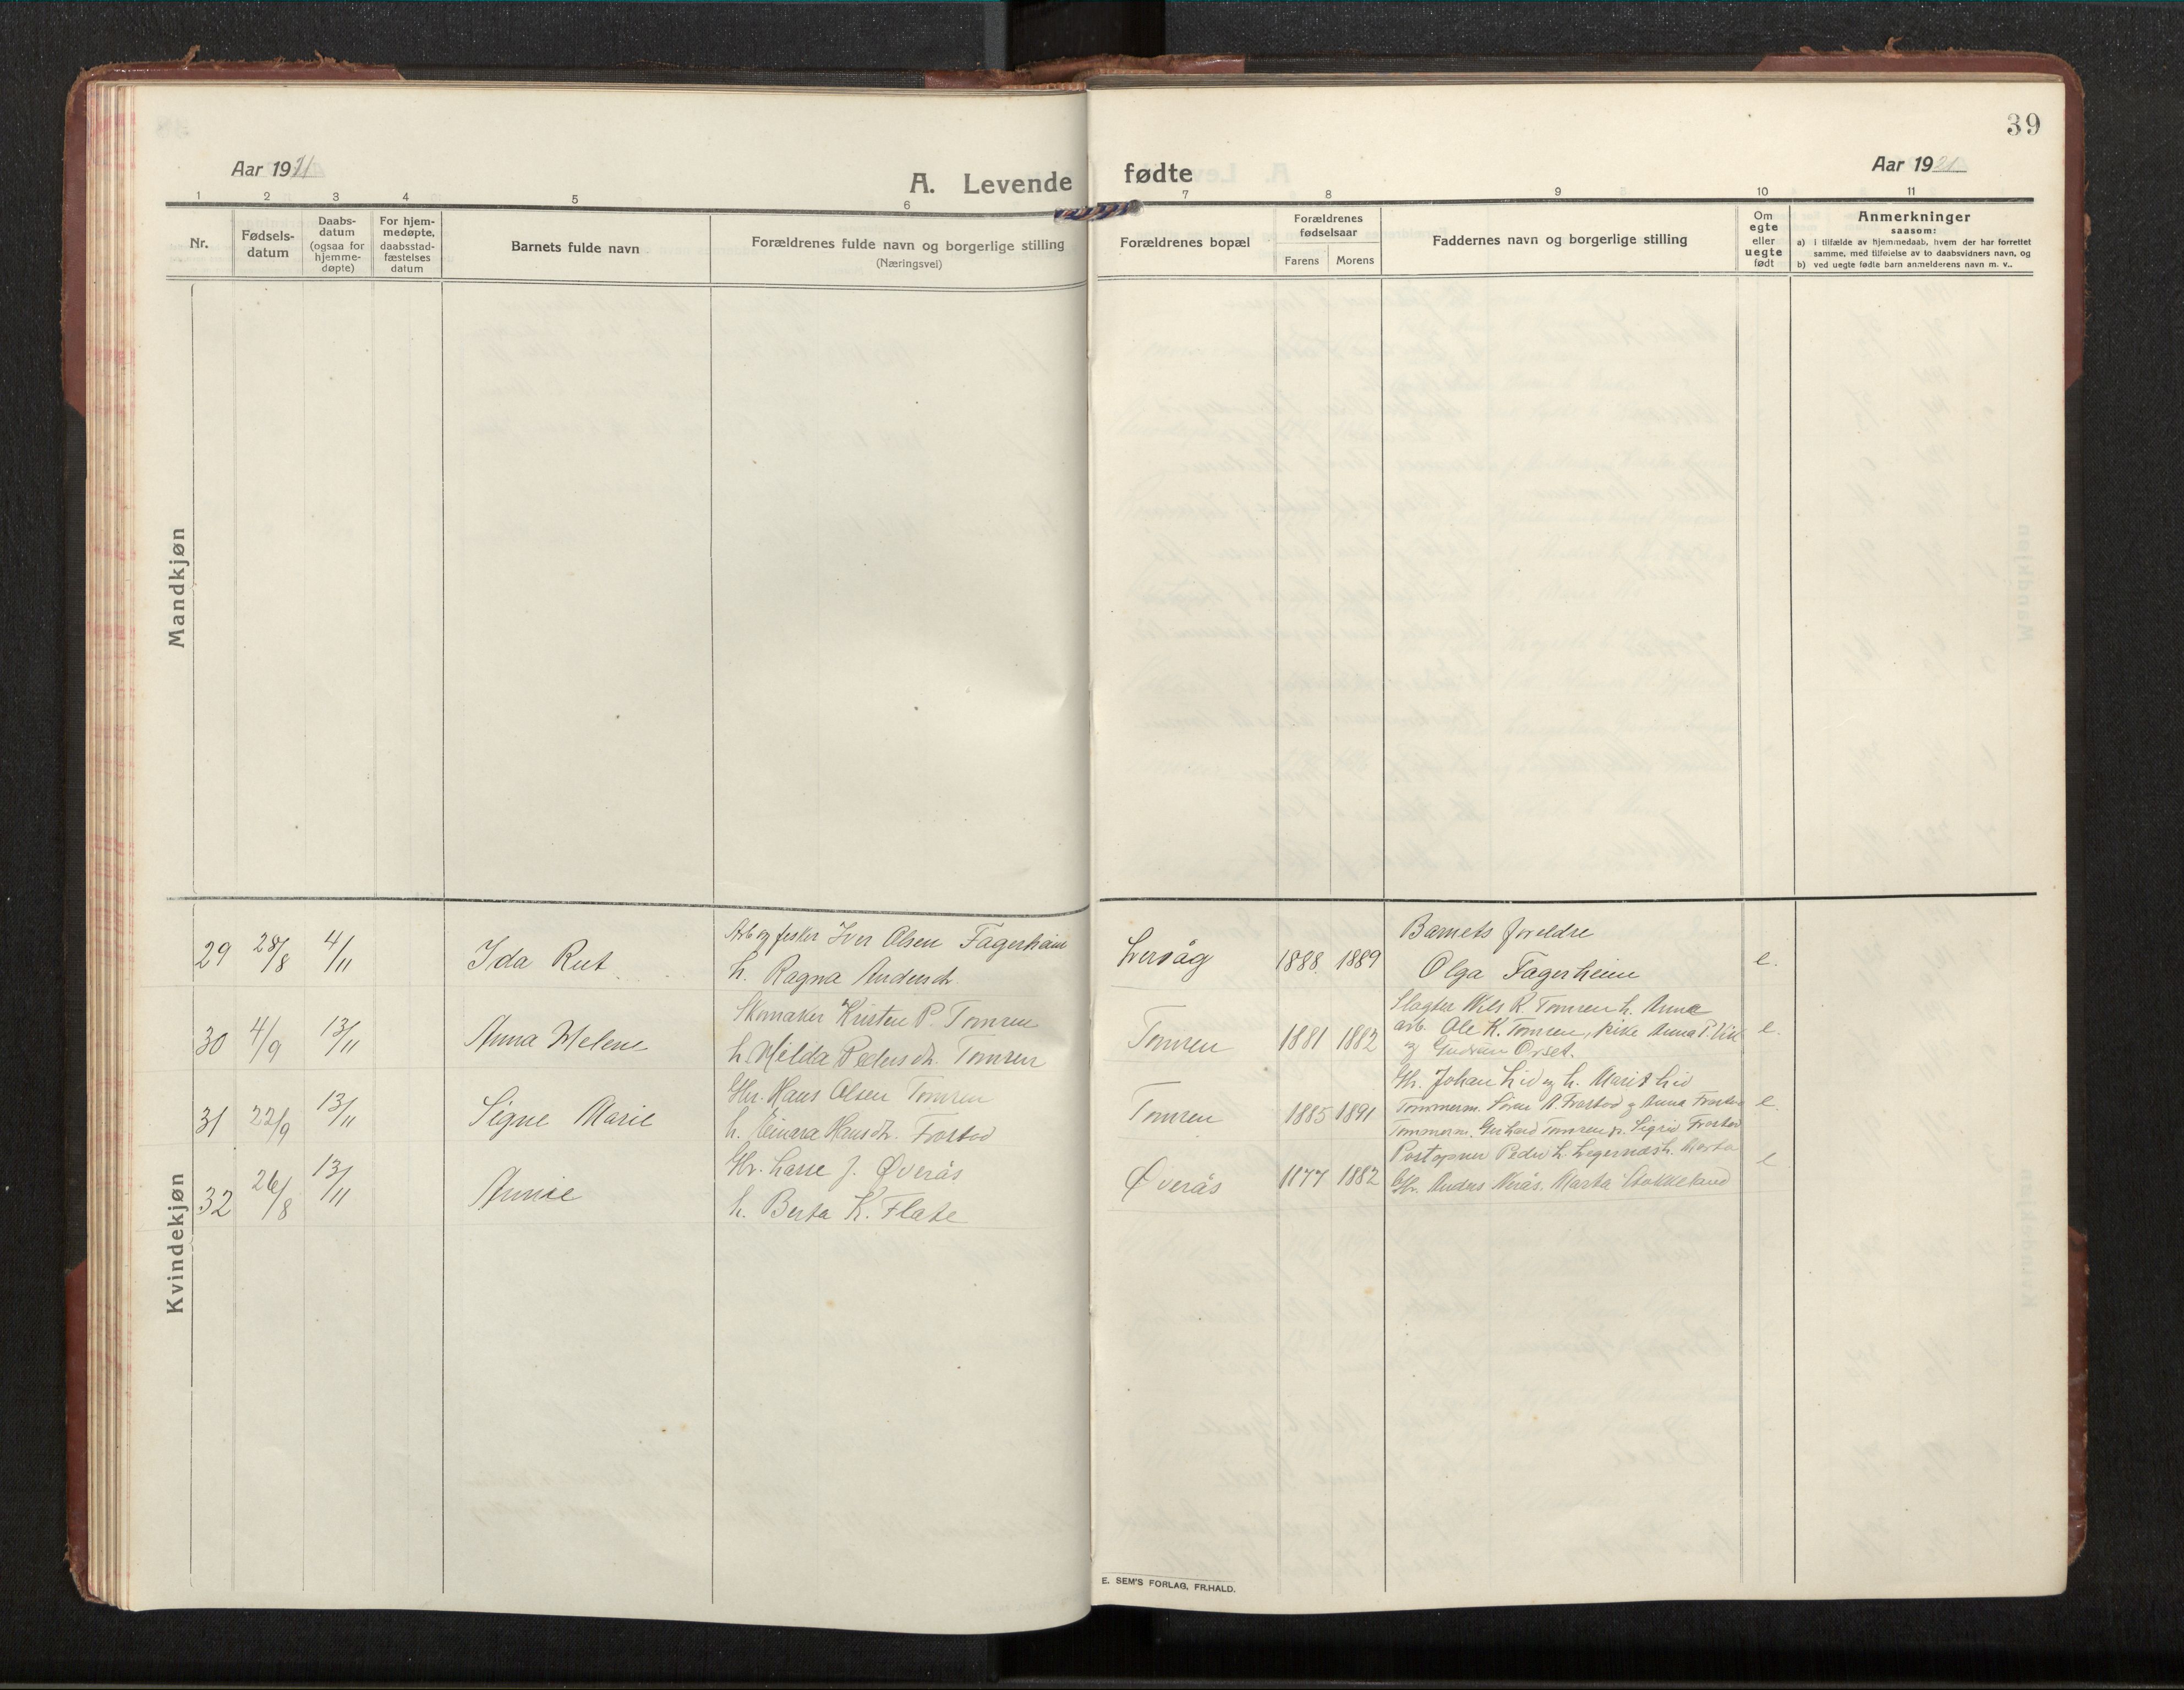 39
Aar 1921
A. Levende fødte
Aar 1921
1 2 3 4 5 6 7 8 9 10 11
Nr.
Fødsels-
datum
Daabs-
datum
(ogsaa for
hjemme-
døpte)
For hjem-
medøpte,
daabsstad-
fæstelses
datum
Barnets fulde navn
Forældrenes fulde navn og borgerlige stilling
(Næringsvei)
Forældrenes bopæl
Forældrenes
fødselsaar
Farens Morens
Faddernes navn og borgerlige stilling
Om
egte
eller
uegte
født
Anmerkninger
saasom:
a) i tilfælde av hjemmedaab, hvem der har forrettet
samme, med tilføielse av to daabsvidners navn, og
b) ved uegte fødte barn anmelderens navn m. v..
Mandkjøn
Kvindekjøn
29 28/8 4/11 Ida Rut
Arb og fisker Iver Olsen Fagerheim
h. Ragna Andersdt.
1888 1889
Barnets foreldre
Olga Fagerheim
e.
30 4/9 13/11 Anna Helene
Skomaker Kristen P. Tomren
h. Hilda Pedersdt. Tomren
Tomren 1881 1882
Slagter Nils R. Tomren h. Anna
arb. Ole K. Tomren, pike Anna P. Vik
og Gudrun Orset.
e.
31 22/9 13/11 Signe Marie
Gbr. Hans Olsen Tomren
h. Einara Hansdt. Frostad
Tomren 1885 1891
Gbr. Johan Lid og h. Marit Lid
Tømmerm. Søren A. Frostad og Anna Frostad
Tømmerm. Gerhard Tomren p. Sigrid Frostad
e.
32 26/8 13/11 Annie
Gbr. Lasse J. Øverås
h. Berta K. Flate
Øverås 1877 1882
Postopner Peder L. Legernes h. Marta
Gbr. Anders Nerås. Marta Stokkeland
e
E. SEM'S FORLAG, FR.HALD.